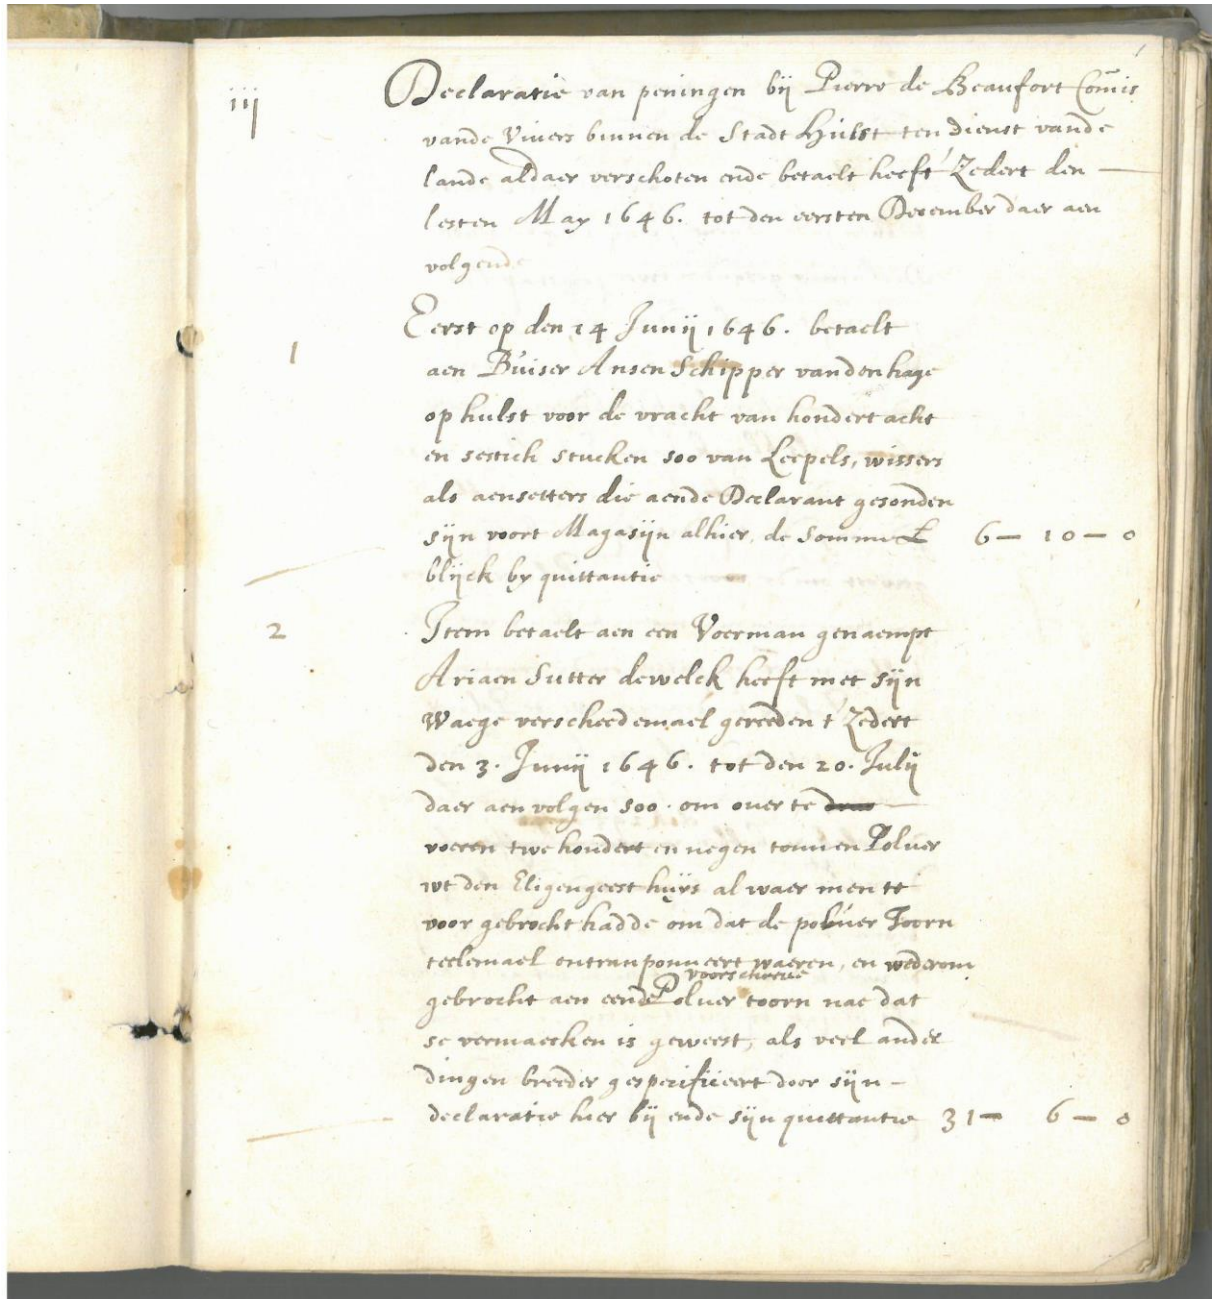 1
iij
Declaratie van peningen bij Pierre de Beaufort Com̄is
vande Vivers binnen de Stadt Hulst ten dienst vande
lande aldaer verschoten ende betaelt heeft 'Zedert den —
lesten May 1646. tot den eersten December daer aen
volgende
Eerst op den 14 Junij 1646. betaelt
1
aen Buiser Ansen Schipper vanden hage
op hulst voor de vracht van hondert acht
en sestich stucken soo van Leepels, wissers
als aensetters die aende Declarant gesonden
sijn voort Magasijn alhier, de Somme £ 6 — 10 — 0
blijck by quittantie
2
Item betaelt aen een Voerman genaempt
Ariaen Sutter dewelck heeft met sijn
Waege verscheedemael gereeden t'Zedert
den 3. Junij 1646. tot den 20. Julij
daer aen volgen soo. om over te
voeren twe hondert en negen tonnen Polver
wt den Eligengeest huijs al waer men tt
voor gebrocht hadde om dat de polver Toorn
teelemael ontranponneert waeren, en wederom
voorschreve
gebrocht aen eende Polver toorn nae dat
se vermaecken is geweest, als veel ander
dingen breeder gespecificeert door sijn —
declaratie hier bij ende sijn quittantie 31 — 6 — 0